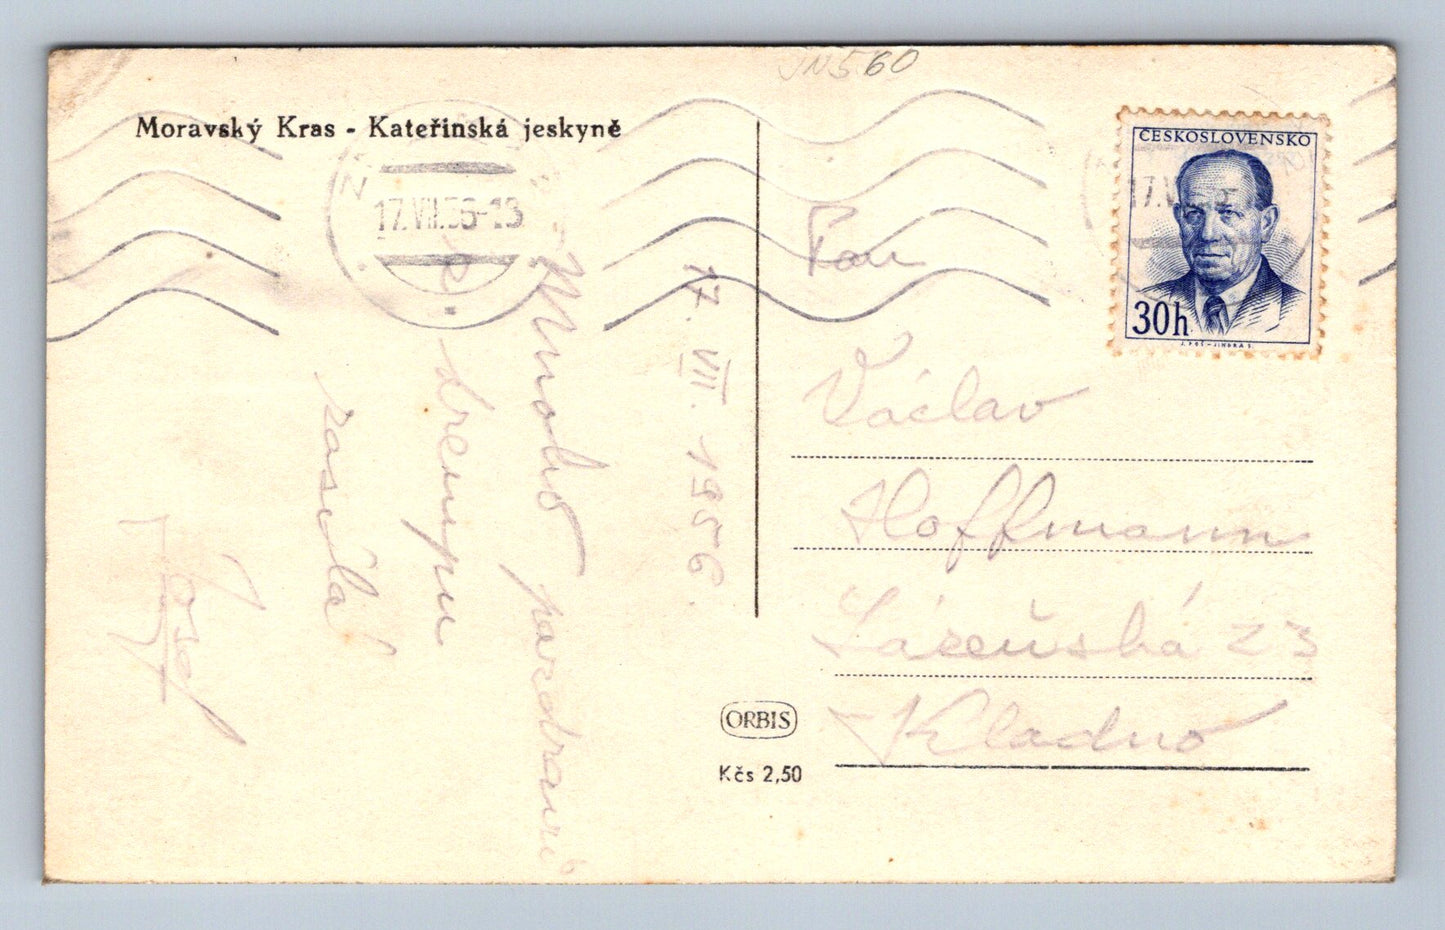 JN560
Moravský Kras - Kateřinská jeskyně
17.VII.56-13
2
17. VII. 1956.
Mnoho pozdravů
z
zasílá
Josef
ORBIS
Kčs 2,50
ČESKOSLOVENSKO
30h
Pan
Václav
Hoffmann
Lázeňská 23
Kladno